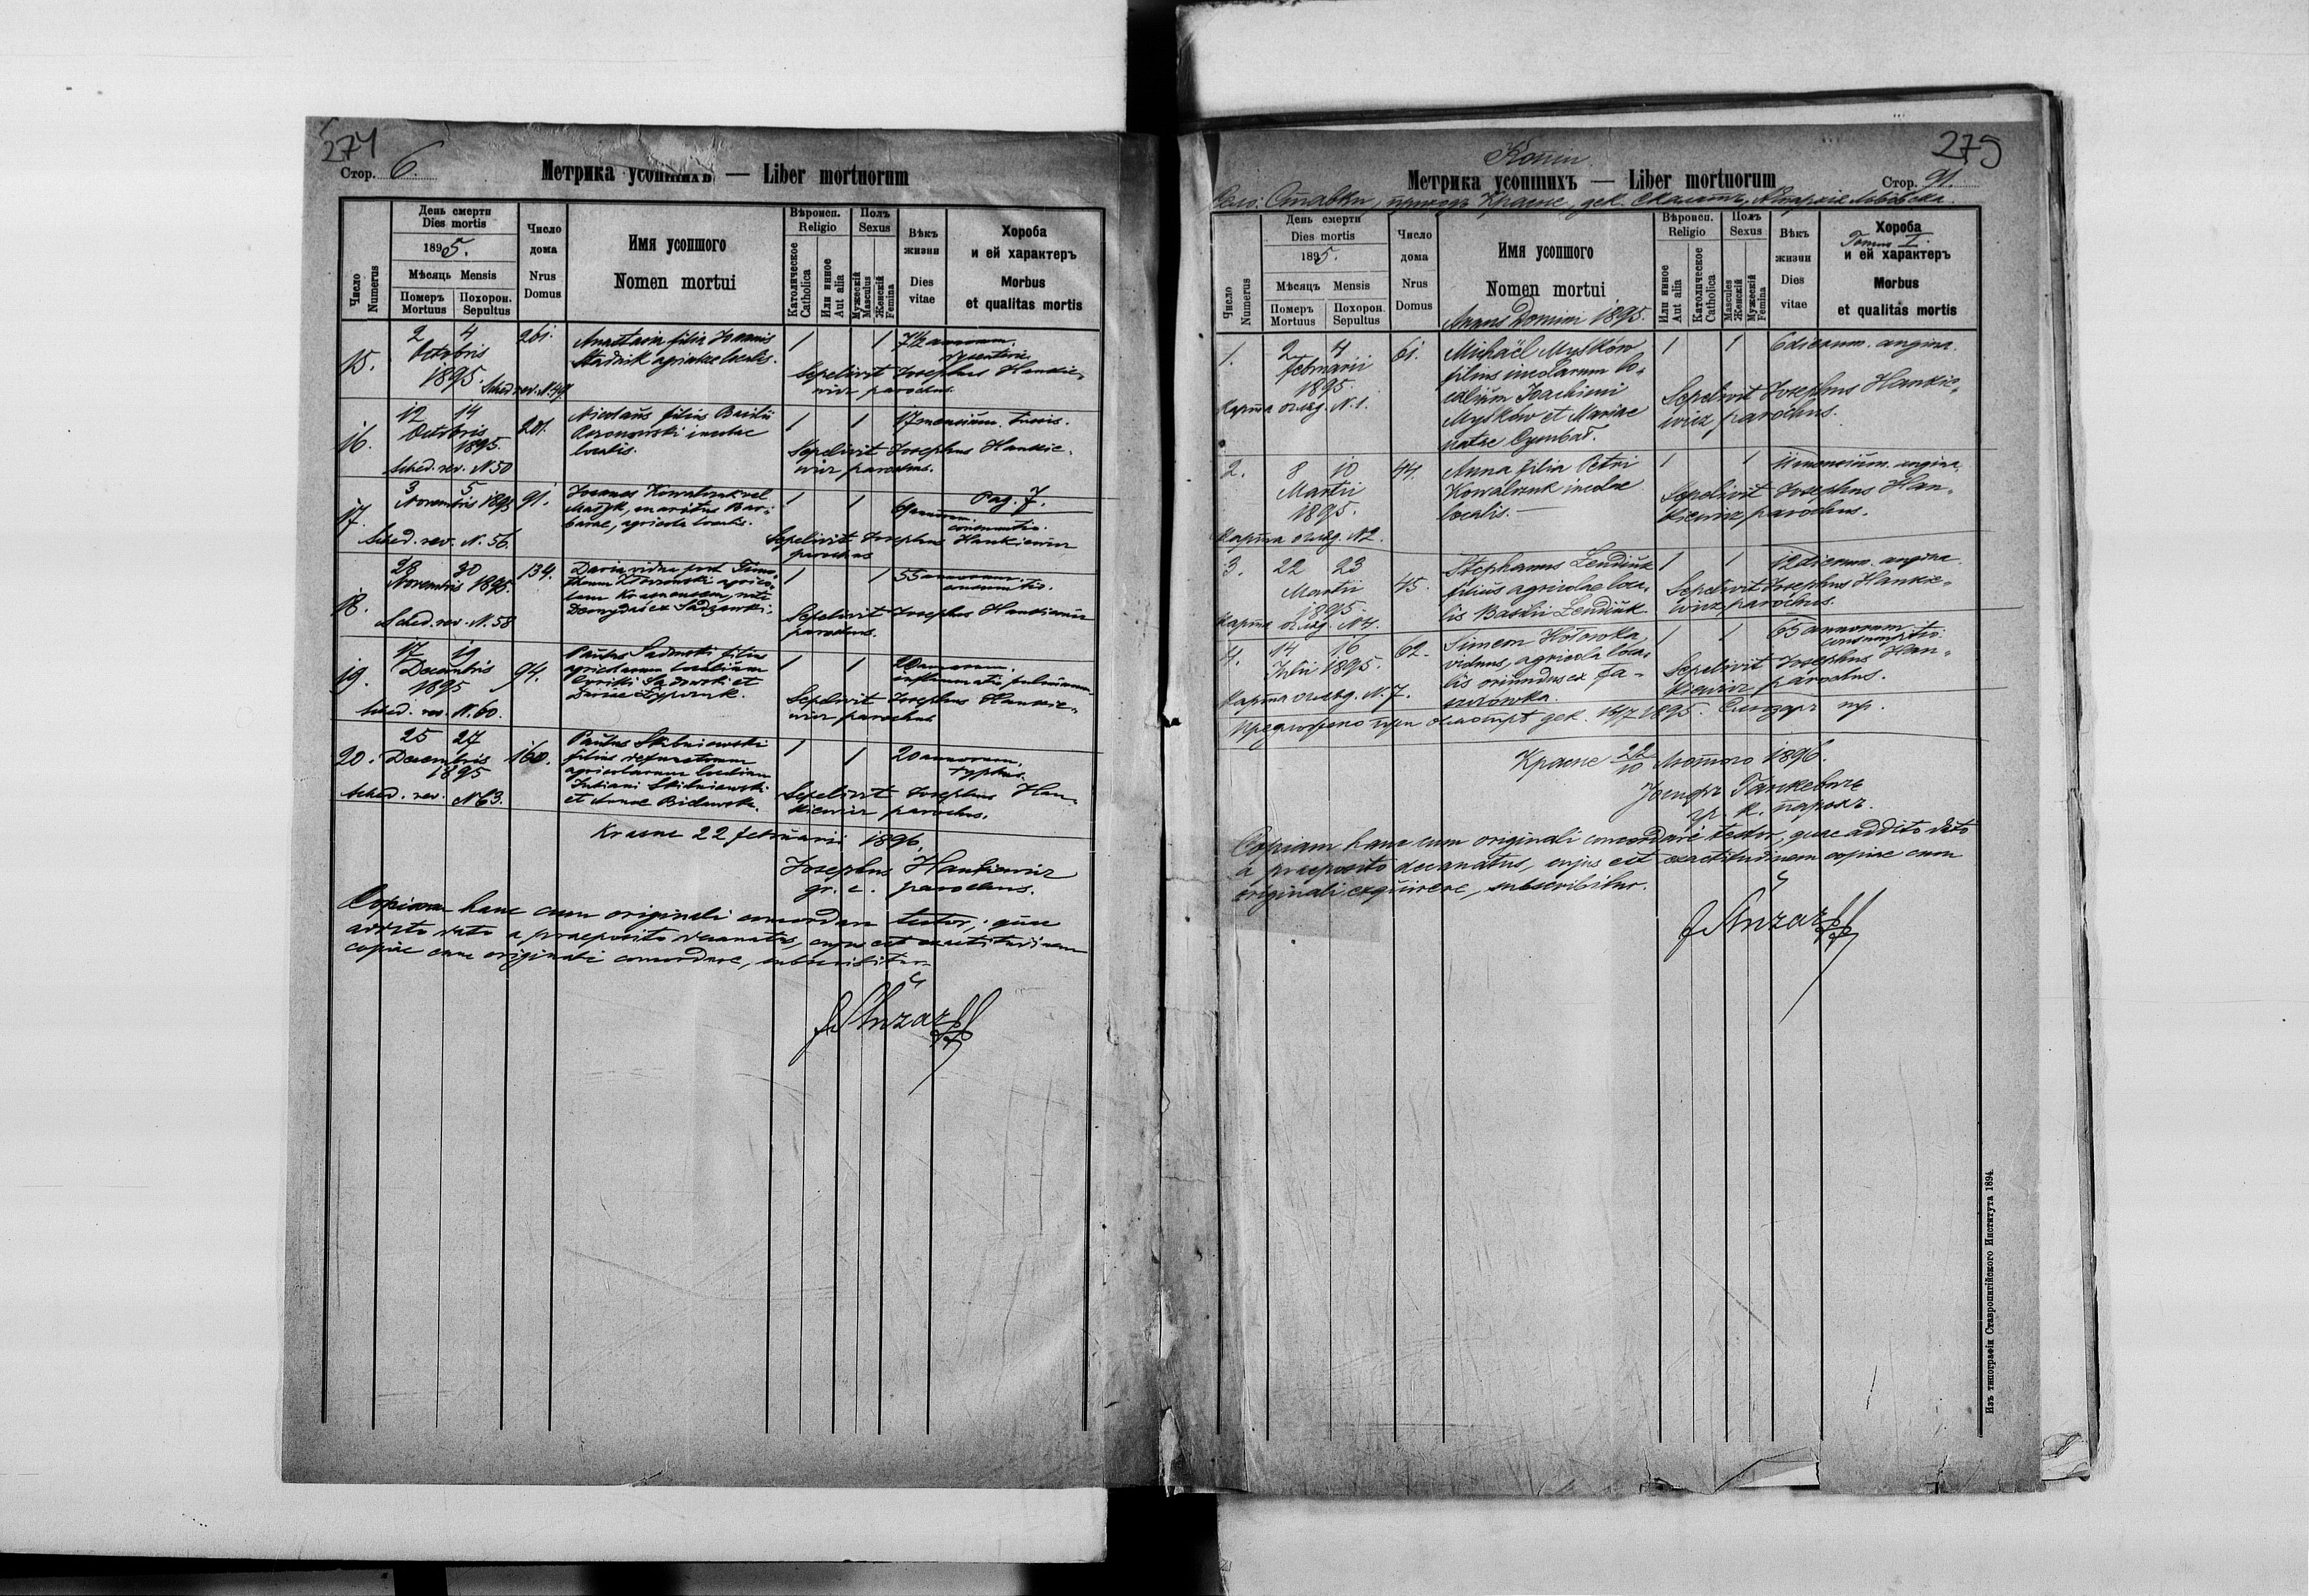 274
Стор. 6.
Метрика усопшихъ — Liber mortuorum
Число
Numerus
День смерти
Dies mortis
1895.
Мѣсяць Mensis
Померъ
Mortuus
Похорон.
Sepultus
Число
дома
Nrus
Domus
Имя усопшого
Nomen mortui
Вѣроисп.
Religio
Католическое
Catholica
Или инное
Aut alia
Полъ
Sexus
Мужескій
Masculus
Женскій
Femina
Вѣкъ
жизни
Dies
vitae
Хороба
и ей характеръ
Morbus
et qualitas mortis
15.
2 4
Octobris
1895.
Sched. rev. N. 49
261.
Anastasia filia Joannis
Stadnik agricolae localis.
1 1
7½ annorum.
dysenteria
Sepelivit Josephus Hankie-
wicz parochus.
16.
12 14
Octobris
1895.
Sched. rev. N. 50
201.
Nicolaus filius Basilii
incolae
localis.
1 1
17 mensium. tussis.
Sepelivit Josephus Hankie-
wicz parochus.
17.
3 5
Novembris 1895
Sched. rev. N. 56.
91.
Joannes Kowalczuk vel
maritus Bar-
barae, agricola localis.
1 1
Pag. 7.
69 annorum.
consumtio.
Sepelivit Josephus Hankiewicz
parochus
18.
28 30
Novembris 1895.
Sched. rev. N. 58
134.
Daria vidua post Timo-
theum agrico-
lam Krasnensem, nata
1 1
55 annorum.
consumtio.
Sepelivit Josephus Hankiewicz
parochus.
19.
17 19
Decembris
1895
Sched. rev. N. 60.
94.
Paulus Sadowski filius
agricolarum localium
Cyrilli Sadowski et
Dariae
1 1
20 annorum.
inflammatio pulmonum.
Sepelivit Josephus Hankie-
wicz parochus
20.
25 27
Decembris
1895
Sched. rev. N 63.
160.
Paulus Skibniewski
filius defunctorum
agricolarum localium
Juliani Skibniewski
et Annae
1 1
20 annorum.
typhus.
Sepelivit Josephus Han-
kiewicz parochus.
Krasne 22 februarii 1896.
Josephus Hankiewicz
gr. c. parochus.
Copiam hanc cum originali concordare testor, quae
addito dato a praeposito decanatus, cujus est exactitudinem
copiae cum originali concordare, subscribitur.
275
Копія
Метрика усопшихъ — Liber mortuorum
Стор. 91.
Село: Ставки, приходъ Красне, дек. Скалатъ, Епархія Львôвска.
Число
Numerus
День смерти
Dies mortis
1895.
Мѣсяць Mensis
Померъ
Mortuus
Похорон.
Sepultus
Число
дома
Nrus
Domus
Имя усопшого
Nomen mortui
Annus Domini 1895.
Вѣроисп.
Religio
Или инное
Aut alia
Католическое
Catholica
Полъ
Sexus
Mascules
Женскій
Мужескій
Femina
Вѣкъ
жизни
Dies
vitae
Хороба
Tomus I.
и ей характеръ
Morbus
et qualitas mortis
1.
2 4
februarii
1895.
Карта огляд. N. 1.
61.
Michaël Myśków
filius incolarum lo-
calium Joachimi
Myśków et Mariae
natae Cymbał.
1 1
6 dierum. angina.
Sepelivit Josephus Hankie-
wicz parochus.
2.
8 10
Martii
1895.
Карта огляд. N2.
44.
Anna filia Petri
Kowalczuk incolae
localis.
1 1
11 mensium. angina.
Sepelivit Josephus Han-
kiewicz, parochus.
3.
22 23
Martii
1895.
Карта огляд. N4.
45.
Stephanus Lendiuk
filius agricolae loca-
lis Basilii Lendiuk
1 1
12 dierum. angina
Sepelivit Josephus Hankie-
wicz parochus.
4.
14 16
Julii 1895.
Карта огляд. N. 7.
62.
Simeon Hołowka
viduus, agricola loca-
lis oriundus ex Fa-
1 1
65 annorum.
consumptio.
Sepelivit Josephus Han-
kiewicz parochus.
Предложено при дек. 16/7 1895.
Красне 22/10 Лютого 1896.
Іосифъ Ганкевичъ
гр. к. парохъ.
Copiam hanc cum originali concordare testor, quae addito dato
a praeposito decanatus, cujus est exactitudinem copiae cum
originali exquirere, subscribitur.
Изъ типографіи Ставропигійского Института 1894.